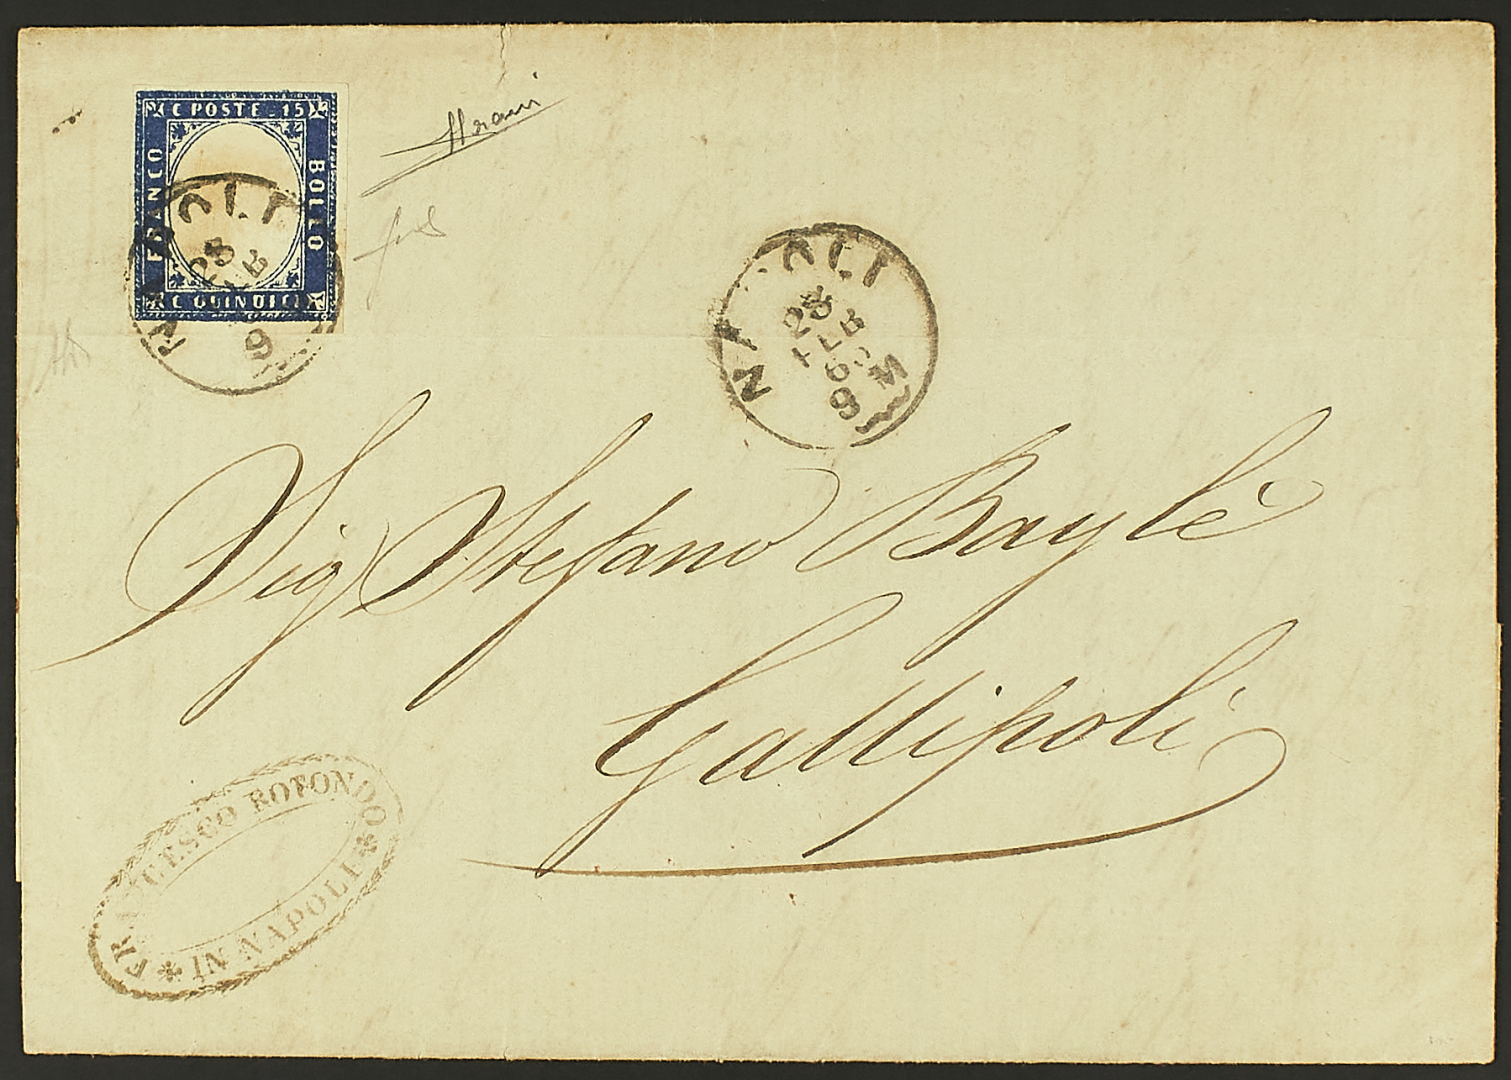 C POSTE 15
FRANCO
BOLLO
C QUINDICI
NAPOLI
28
FEB
9
NAPOLI
28
FEB
63
9 M
Sig Stefano Baylè
Gallipoli
FRANCESCO ROTONDO
* IN NAPOLI *